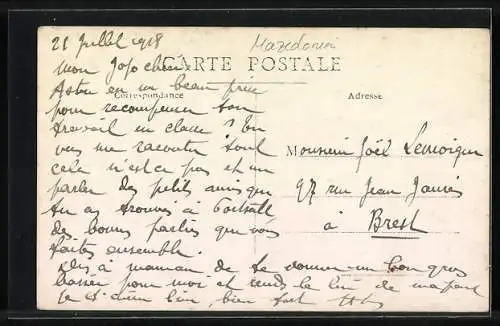 21 Juillet 1918
Mazedonien
CARTE POSTALE
Mon Jojo chéri
As tu eu un beau prix
Correspondance
Adresse
pour récompenser ton
travail en classe ? Tu
vas me raconter tout
cela n'est ce pas et me
parler des petits amis que
tu as trouvés à Portsall
des bonnes parties que vous
faites ensemble.
Monsieur Joël Lemoigne
97 rue Jean Jaurès
à Brest
Dis à maman de te donner un bon gros
baiser pour moi et rends le lui de ma part
bien fort